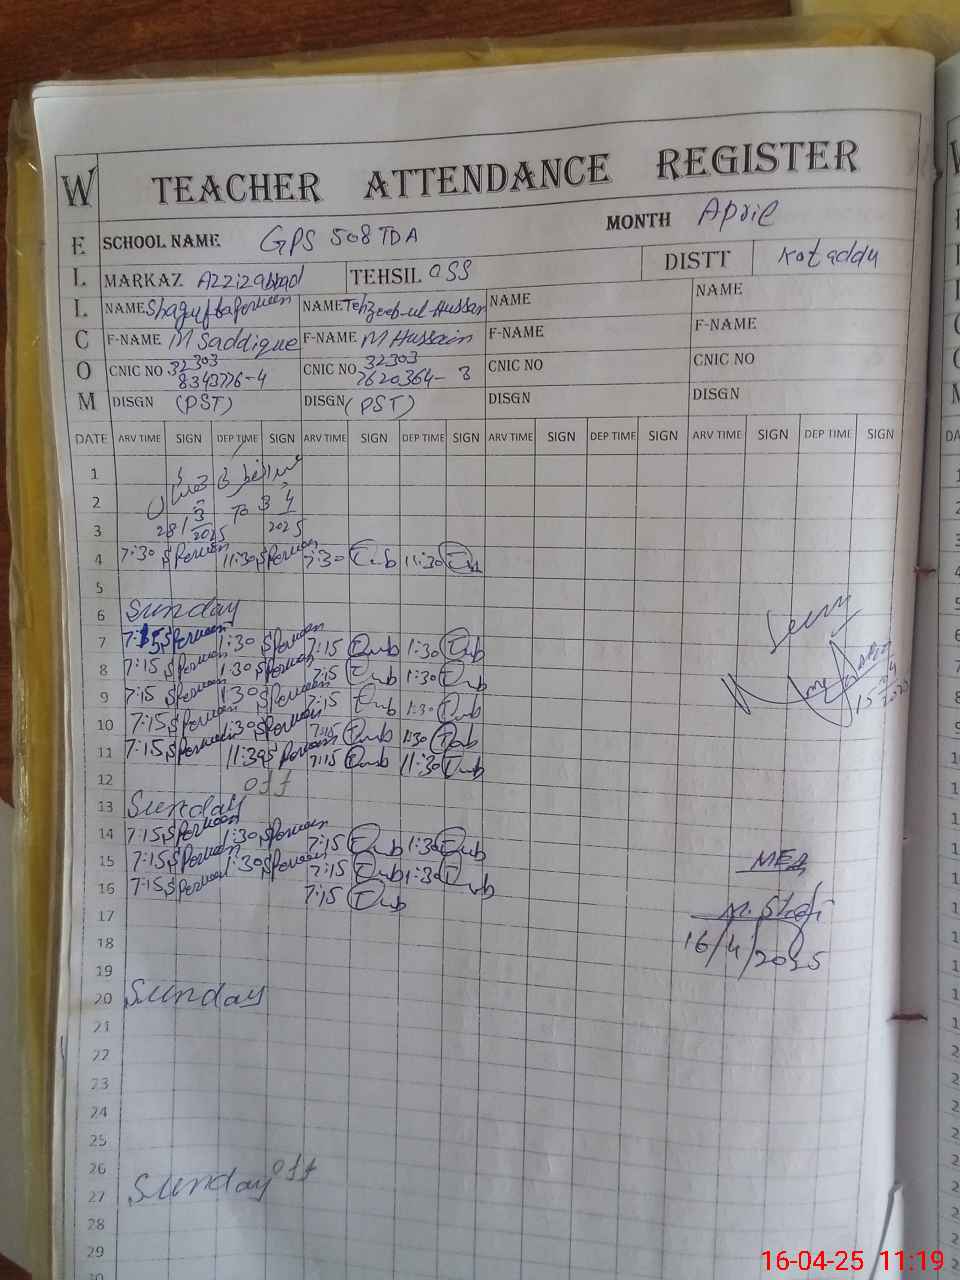 W TEACHER ATTENDANCE REGISTER
E SCHOOL NAME GPS 508 TDA MONTH April
L MARKAZ Azzizabbad TEHSIL OSS DISTT Kotaddu
L NAME Shagufta Perveen NAME Tehzeeb-ul-Hussan NAME NAME
C F-NAME M Saddique F-NAME M Hussain F-NAME F-NAME
O CNIC NO 32303 8343776-4 CNIC NO 32303 7620364-3 CNIC NO CNIC NO
M DISGN (PST) DISGN (PST) DISGN DISGN
DATE ARV TIME SIGN DEP TIME SIGN ARV TIME SIGN DEP TIME SIGN ARV TIME SIGN DEP TIME SIGN ARV TIME SIGN DEP TIME SIGN
1
2
3 28/3/2025 To 3 4 2025
4 7:30 SPerveen 11:30 SPerveen 7:30 11:30
5
6 Sunday
7 7:15 SPerveen 1:30 SPerveen 7:15 1:30
8 7:15 SPerveen 1:30 SPerveen 7:15 1:30
9 7:15 SPerveen 1:30 SPerveen 7:15 1:30
10 7:15 SPerveen 1:30 SPerveen 7:15 1:30
11 7:15 SPerveen 11:30 SPerveen 7:15 11:30
12 off
13 Sunday
14 7:15 SPerveen 1:30 SPerveen 7:15 1:30
15 7:15 SPerveen 1:30 SPerveen 7:15 1:30
16 7:15 SPerveen 7:15
17
18
19
20 Sunday
21
22
23
24
25
26
27 Sunday off
28
29
30
15
MEA
M. Shafi
16/4/2025
16-04-25 11:19